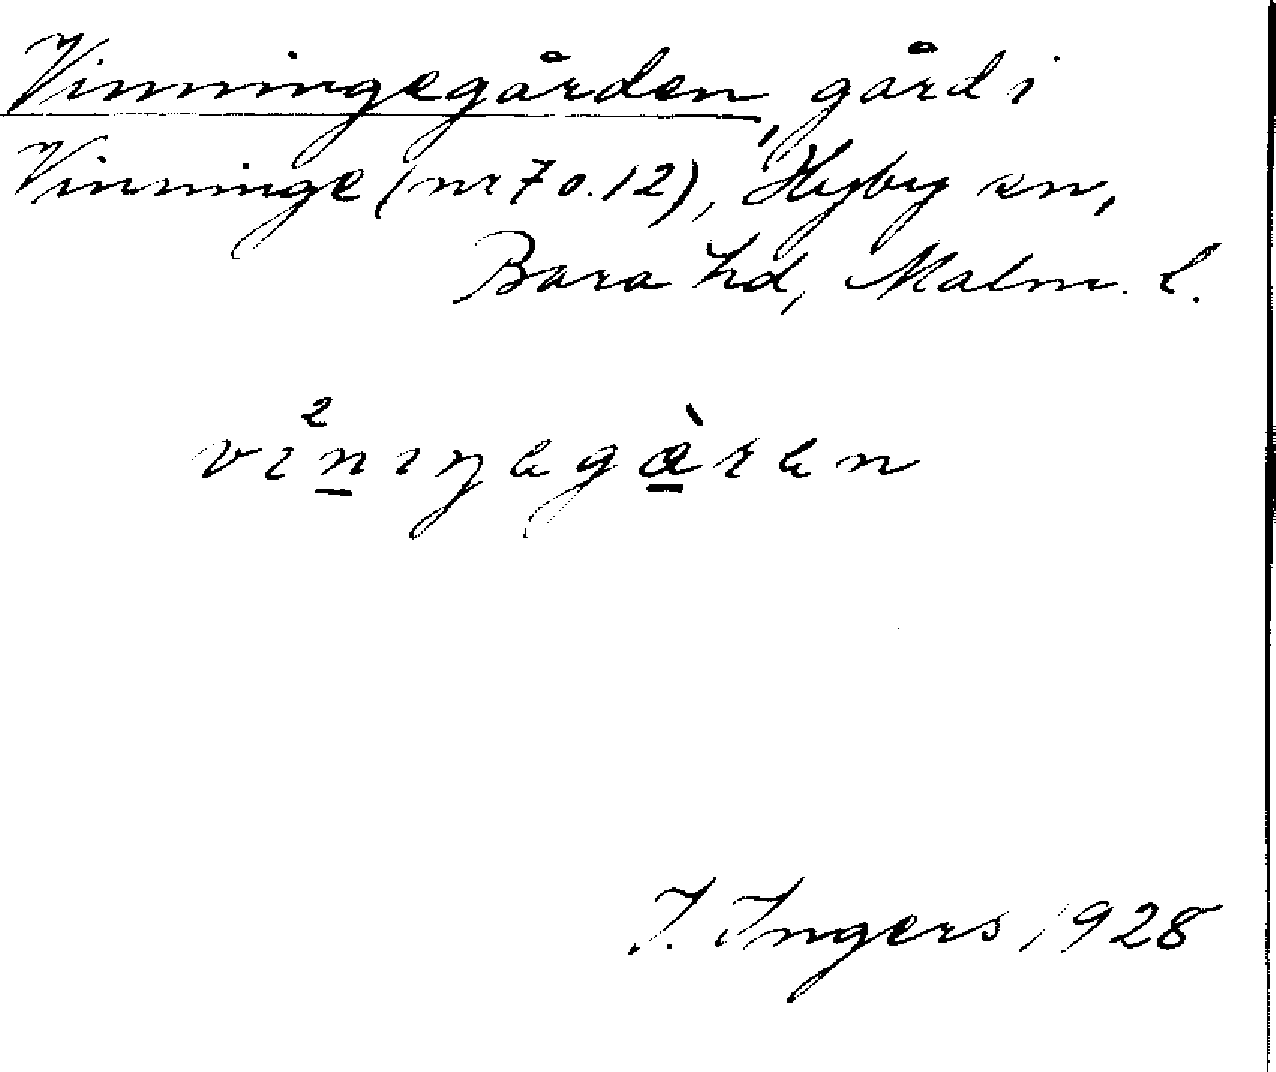 Vinningegården, gård i
Vinninge (nr 7 o. 12), Hyby sn,
Bara hd, Malm. l.
vi²n̲ıŋegæ̲̀ren
I. Ingers 1928